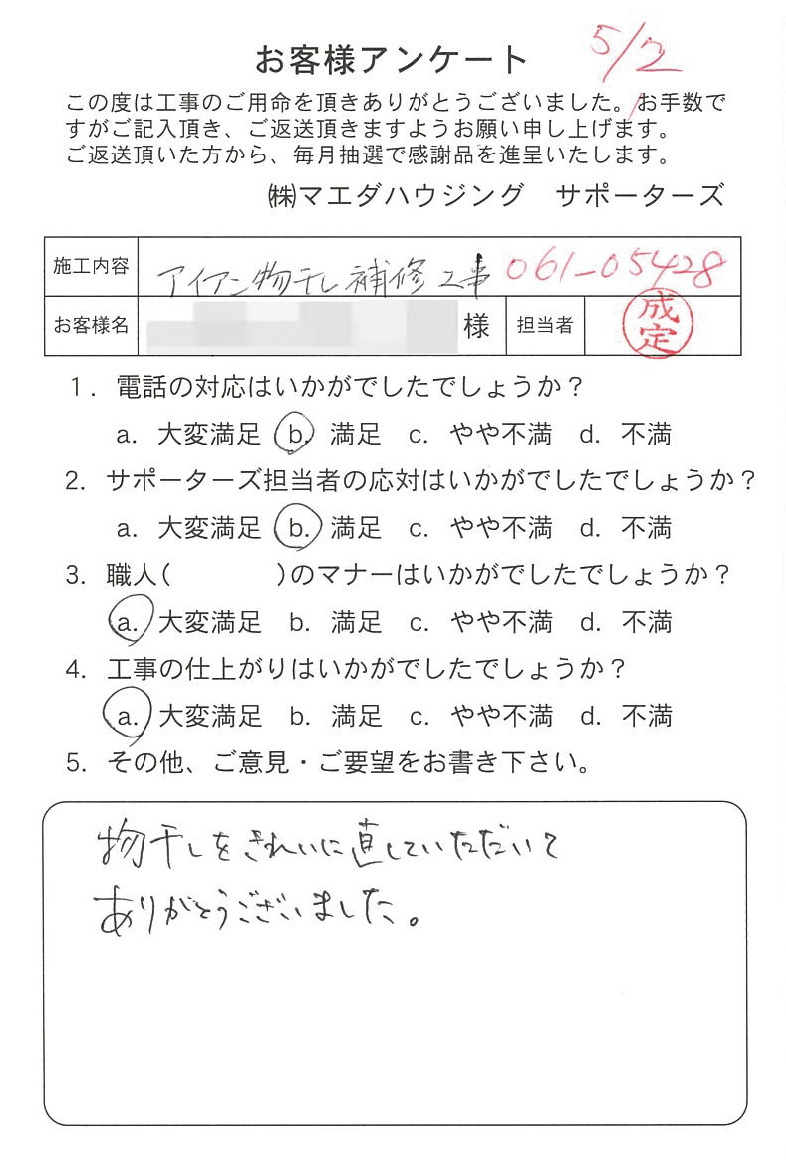 お客様アンケート
5/2
この度は工事のご用命を頂きありがとうございました。お手数で
すがご記入頂き、ご返送頂きますようお願い申し上げます。
ご返送頂いた方から、毎月抽選で感謝品を進呈いたします。
㈱マエダハウジング　サポーターズ
施工内容 アイアン物干し補修工事 061-05428
お客様名 様 担当者 成定
1. 電話の対応はいかがでしたでしょうか？
a. 大変満足 b. 満足 c. やや不満 d. 不満
2. サポーターズ担当者の応対はいかがでしたでしょうか？
a. 大変満足 b. 満足 c. やや不満 d. 不満
3. 職人(　　　　)のマナーはいかがでしたでしょうか？
a. 大変満足 b. 満足 c. やや不満 d. 不満
4. 工事の仕上がりはいかがでしたでしょうか？
a. 大変満足 b. 満足 c. やや不満 d. 不満
5. その他、ご意見・ご要望をお書き下さい。
物干しをきれいに直していただいて
ありがとうございました。